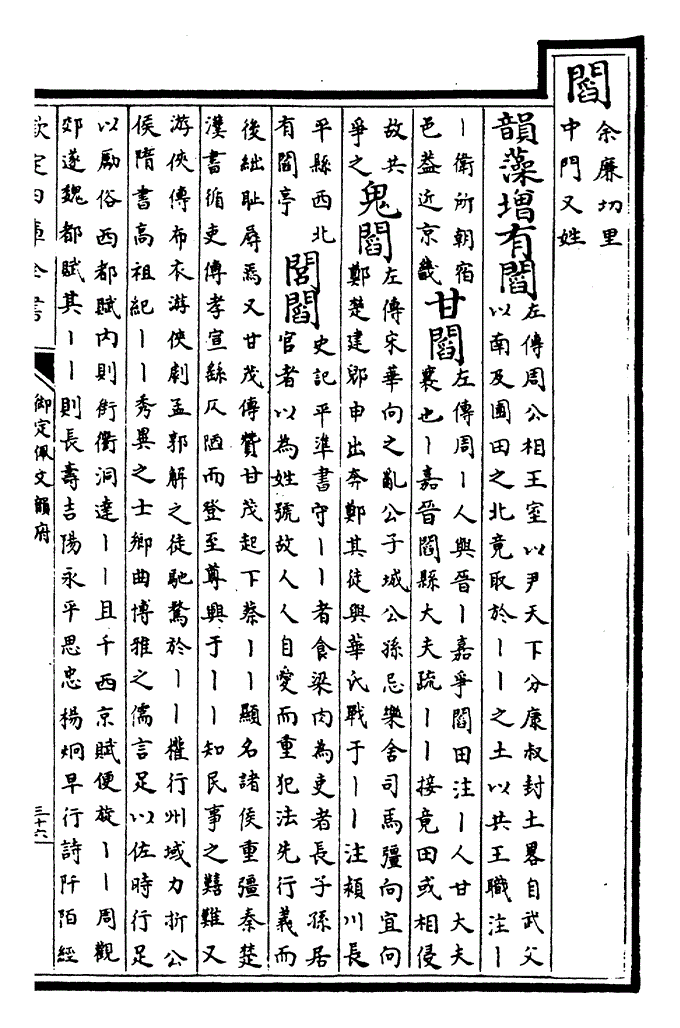 閻 余廉切里
中門又姓
韻藻增有閻 左傳周公相王室以尹天下分康叔封土畧自武父
以南及圃田之北竟取於丨丨之土以共王職注丨
丨衛所朝宿
邑葢近京畿 甘閻 左傳周丨人與晉丨嘉爭閻田注丨人甘大夫
襄也丨嘉晉閻縣大夫疏丨丨接竟田或相侵
故共
爭之 鬼閻 左傳宋華向之亂公子城公孫忌樂舍司馬彊向宜向
鄭楚建郳申出奔鄭其徒與華氏戰于丨丨注潁川長
平縣西北
有閻亭 閭閻 史記平準書守丨丨者食粱肉為吏者長子孫居
官者以為姓號故人人自愛而重犯法先行義而
後絀耻辱焉又甘茂傳贊甘茂起下蔡丨丨顯名諸侯重彊秦楚
漢書循吏傳孝宣繇仄陋而登至尊興于丨丨知民事之囏難又
游俠傳布衣游俠劇孟郭解之徒馳騖於丨丨權行州域力折公
侯隋書高祖紀丨丨秀異之士鄉曲博雅之儒言足以佐時行足
以勵俗西都賦内則街衢洞達丨丨且千西京賦便旋丨丨周觀
郊遂魏都賦其丨丨則長壽吉陽永平思忠楊烱早行詩阡陌經
欽定四庫全書
御定佩文韻府
三十六